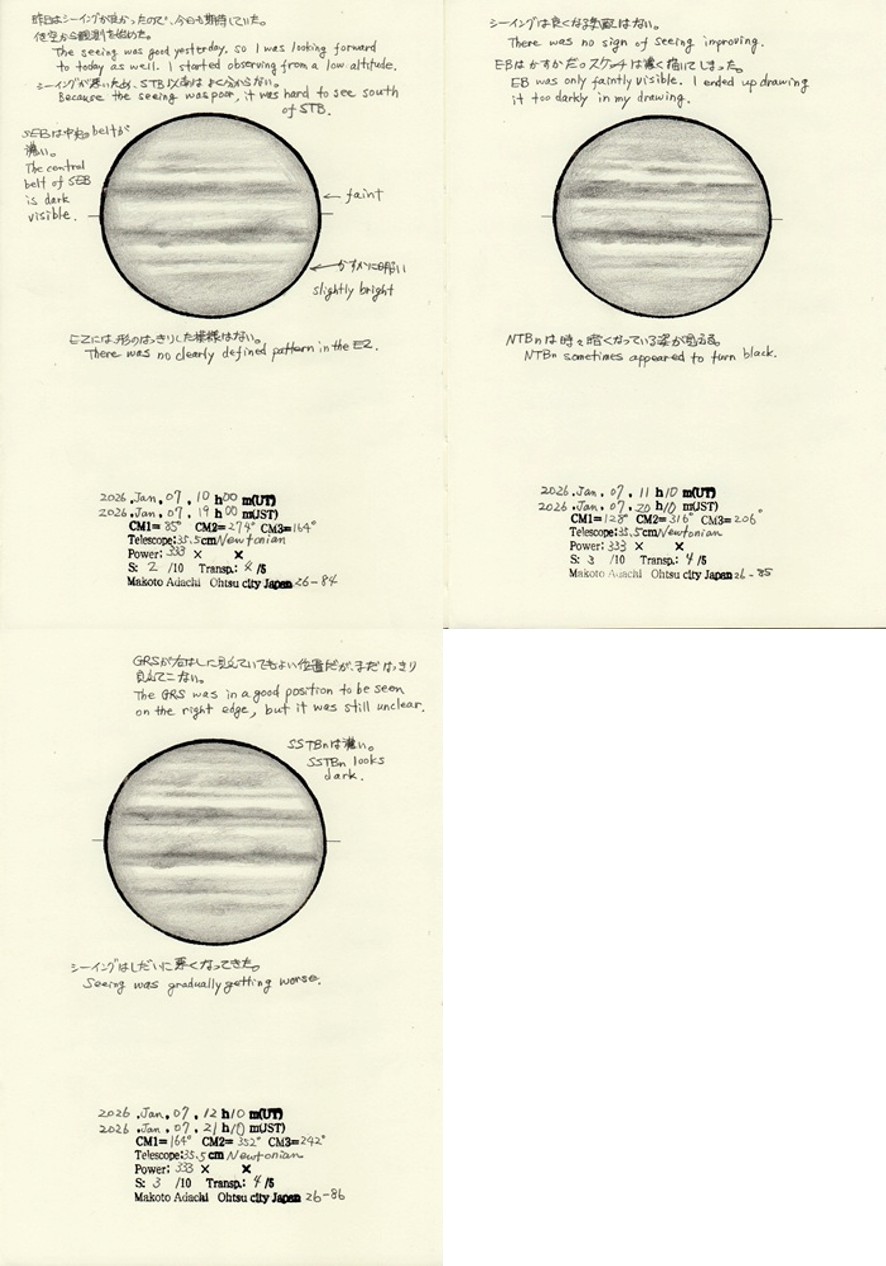 昨日はシーイングが良かったので、今日も期待していた。
低空から観測を始めた。
The seeing was good yesterday. so I was looking forward
to today as well. I started observing from a low altitude.
シーイングが悪いため、STB以南はよく分からない。
Because the seeing was poor, it was hard to see south
of STB.
SEBは中央のbeltが
濃い。
The central
belt of SEB
is dark
visible.
← faint
← かすかに明るい
slightly bright
EZには形のはっきりした模様はない。
There was no clearly defined pattern in the EZ.
2026.Jan.07.10h00m(UT)
2026.Jan.07.19h00m(JST)
CM1=85° CM2=274° CM3=164°
Telescope:35.5cm Newtonian
Power: 333 × ×
S: 2 /10 Transp.: /5
Makoto Adachi Ohtsu city Japan 26-84
シーイングは良くなる気配はない。
There was no sign of seeing improving.
EBはかすかだ。スケッチは濃く描いてしまった。
EB was only faintly visible. I ended up drawing
it too darkly in my drawing.
NTBnは時々暗くなっている姿が見える。
NTBn sometimes appeared to turn black.
2026.Jan.07.11h10m(UT)
2026.Jan.07.20h10m(JST)
CM1=128° CM2=316° CM3=206°
Telescope:35.5cm Newtonian
Power: 333 × ×
S: 3 /10 Transp.: 4/5
Makoto Adachi Ohtsu city Japan 26-85
GRSが右はしに見えていてもよい位置だが、まだはっきり
見えてこない。
The GRS was in a good position to be seen
on the right edge, but it was still unclear.
SSTBnは濃い。
SSTBn looks
dark.
シーイングはしだいに悪くなってきた。
Seeing was gradually getting worse.
2026.Jan.07.12h10m(UT)
2026.Jan.07.21h10m(JST)
CM1=164° CM2=352° CM3=242°
Telescope:35.5cm Newtonian
Power: 333 × ×
S: 3 /10 Transp.: 4/5
Makoto Adachi Ohtsu city Japan 26-86